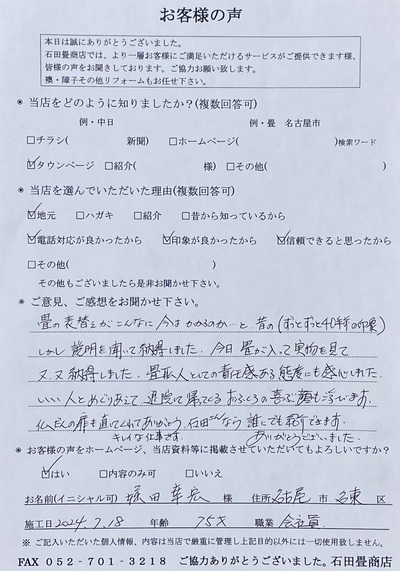 お客様の声
本日は誠にありがとうございました。
石田畳商店では、より一層お客様にご満足いただけるサービスがご提供できます様、
皆様の声をお聞きしております。ご協力お願い致します。
襖・障子その他リフォームもお任せ下さい。
※ 当店をどのように知りましたか?(複数回答可)
例・中日 例・畳 名古屋市
□チラシ( 新聞) □ホームページ( )検索ワード
☑タウンページ □紹介( 様) □その他( )
※ 当店を選んでいただいた理由(複数回答可)
☑地元 □ハガキ □紹介 □昔から知っているから
☑電話対応が良かったから ☑印象が良かったから ☑信頼できると思ったから
□その他( )
その他もございましたら是非お聞かせ下さい。
※ ご意見、ご感想をお聞かせ下さい。
畳の表替えがこんなに今はかかるのか…と、昔の(ずっとずっと40年前の印象)
しかし説明を聞いて納得しました。今日畳が入って実物を見て
又、又納得しました。畳職人としての責任感ある態度にも感心しました。
いい人とめぐりあえて、退院して帰ってくるおふくろの喜ぶ顔も浮びます。
仏だんの扉も直してくれてありがとう、石田さんなら誰にでも紹介できます。
キレイな仕事です ありがとうございました。
※ お客様の声をホームページ、当店資料等に掲載させていただいてもよろしいですか?
☑はい □内容のみ可 □いいえ
お名前(イニシャル可) 堀田 幸宏 様 住所 名古屋 市 名東 区
施工日 2024.7.18 年齢 75才 職業 会社員
※ ご記入いただいた個人情報、内容は当店で厳重に管理し上記目的以外には一切使用致しません。
FAX 052-701-3218 ご協力ありがとうございました。石田畳商店